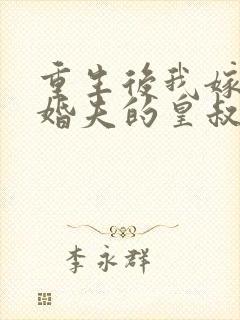 重生後我嫁
婚夫的皇叔
李永群